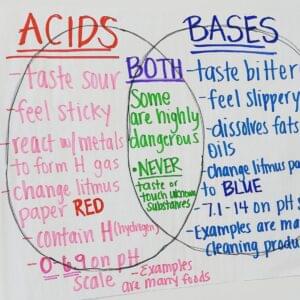 ACIDS
- taste sour
- feel sticky
- react w/metals
to form H gas
- change litmus
paper RED
- contain H (hydrogen)
- 0-6.9 on pH
scale
- Examples
are many foods
BOTH
Some
are highly
dangerous
• NEVER
taste or
touch unknown
substances
BASES
- taste bitter
- feel slippery
- dissolves fats
oils
- Change litmus
to BLUE
- 7.1-14 on pH
- Examples are
cleaning